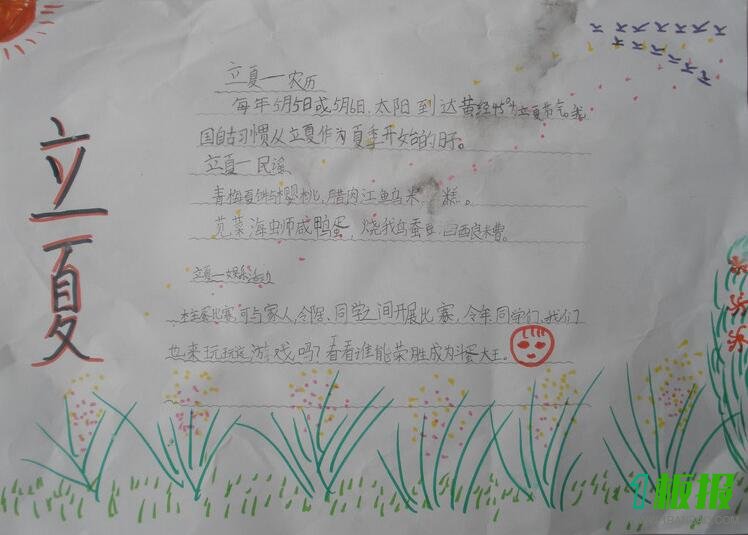 立夏
立夏—农历
每年5月5日或5月6日,太阳到达黄经45°为立夏节气。我
国自古习惯从立夏作为夏季开始的日子。
立夏—民谣
青梅夏饼与樱桃,腊肉江鱼乌米 糕。
苋菜海虫师咸鸭蛋,烧我乌蚕豆 酉良糟。
立夏—娱乐活动
比赛,可与家人,邻居、同学之间开展比赛,今年同学们、我们
也来玩玩这游戏吗?看看谁能荣胜成为斗蛋大王。
板报